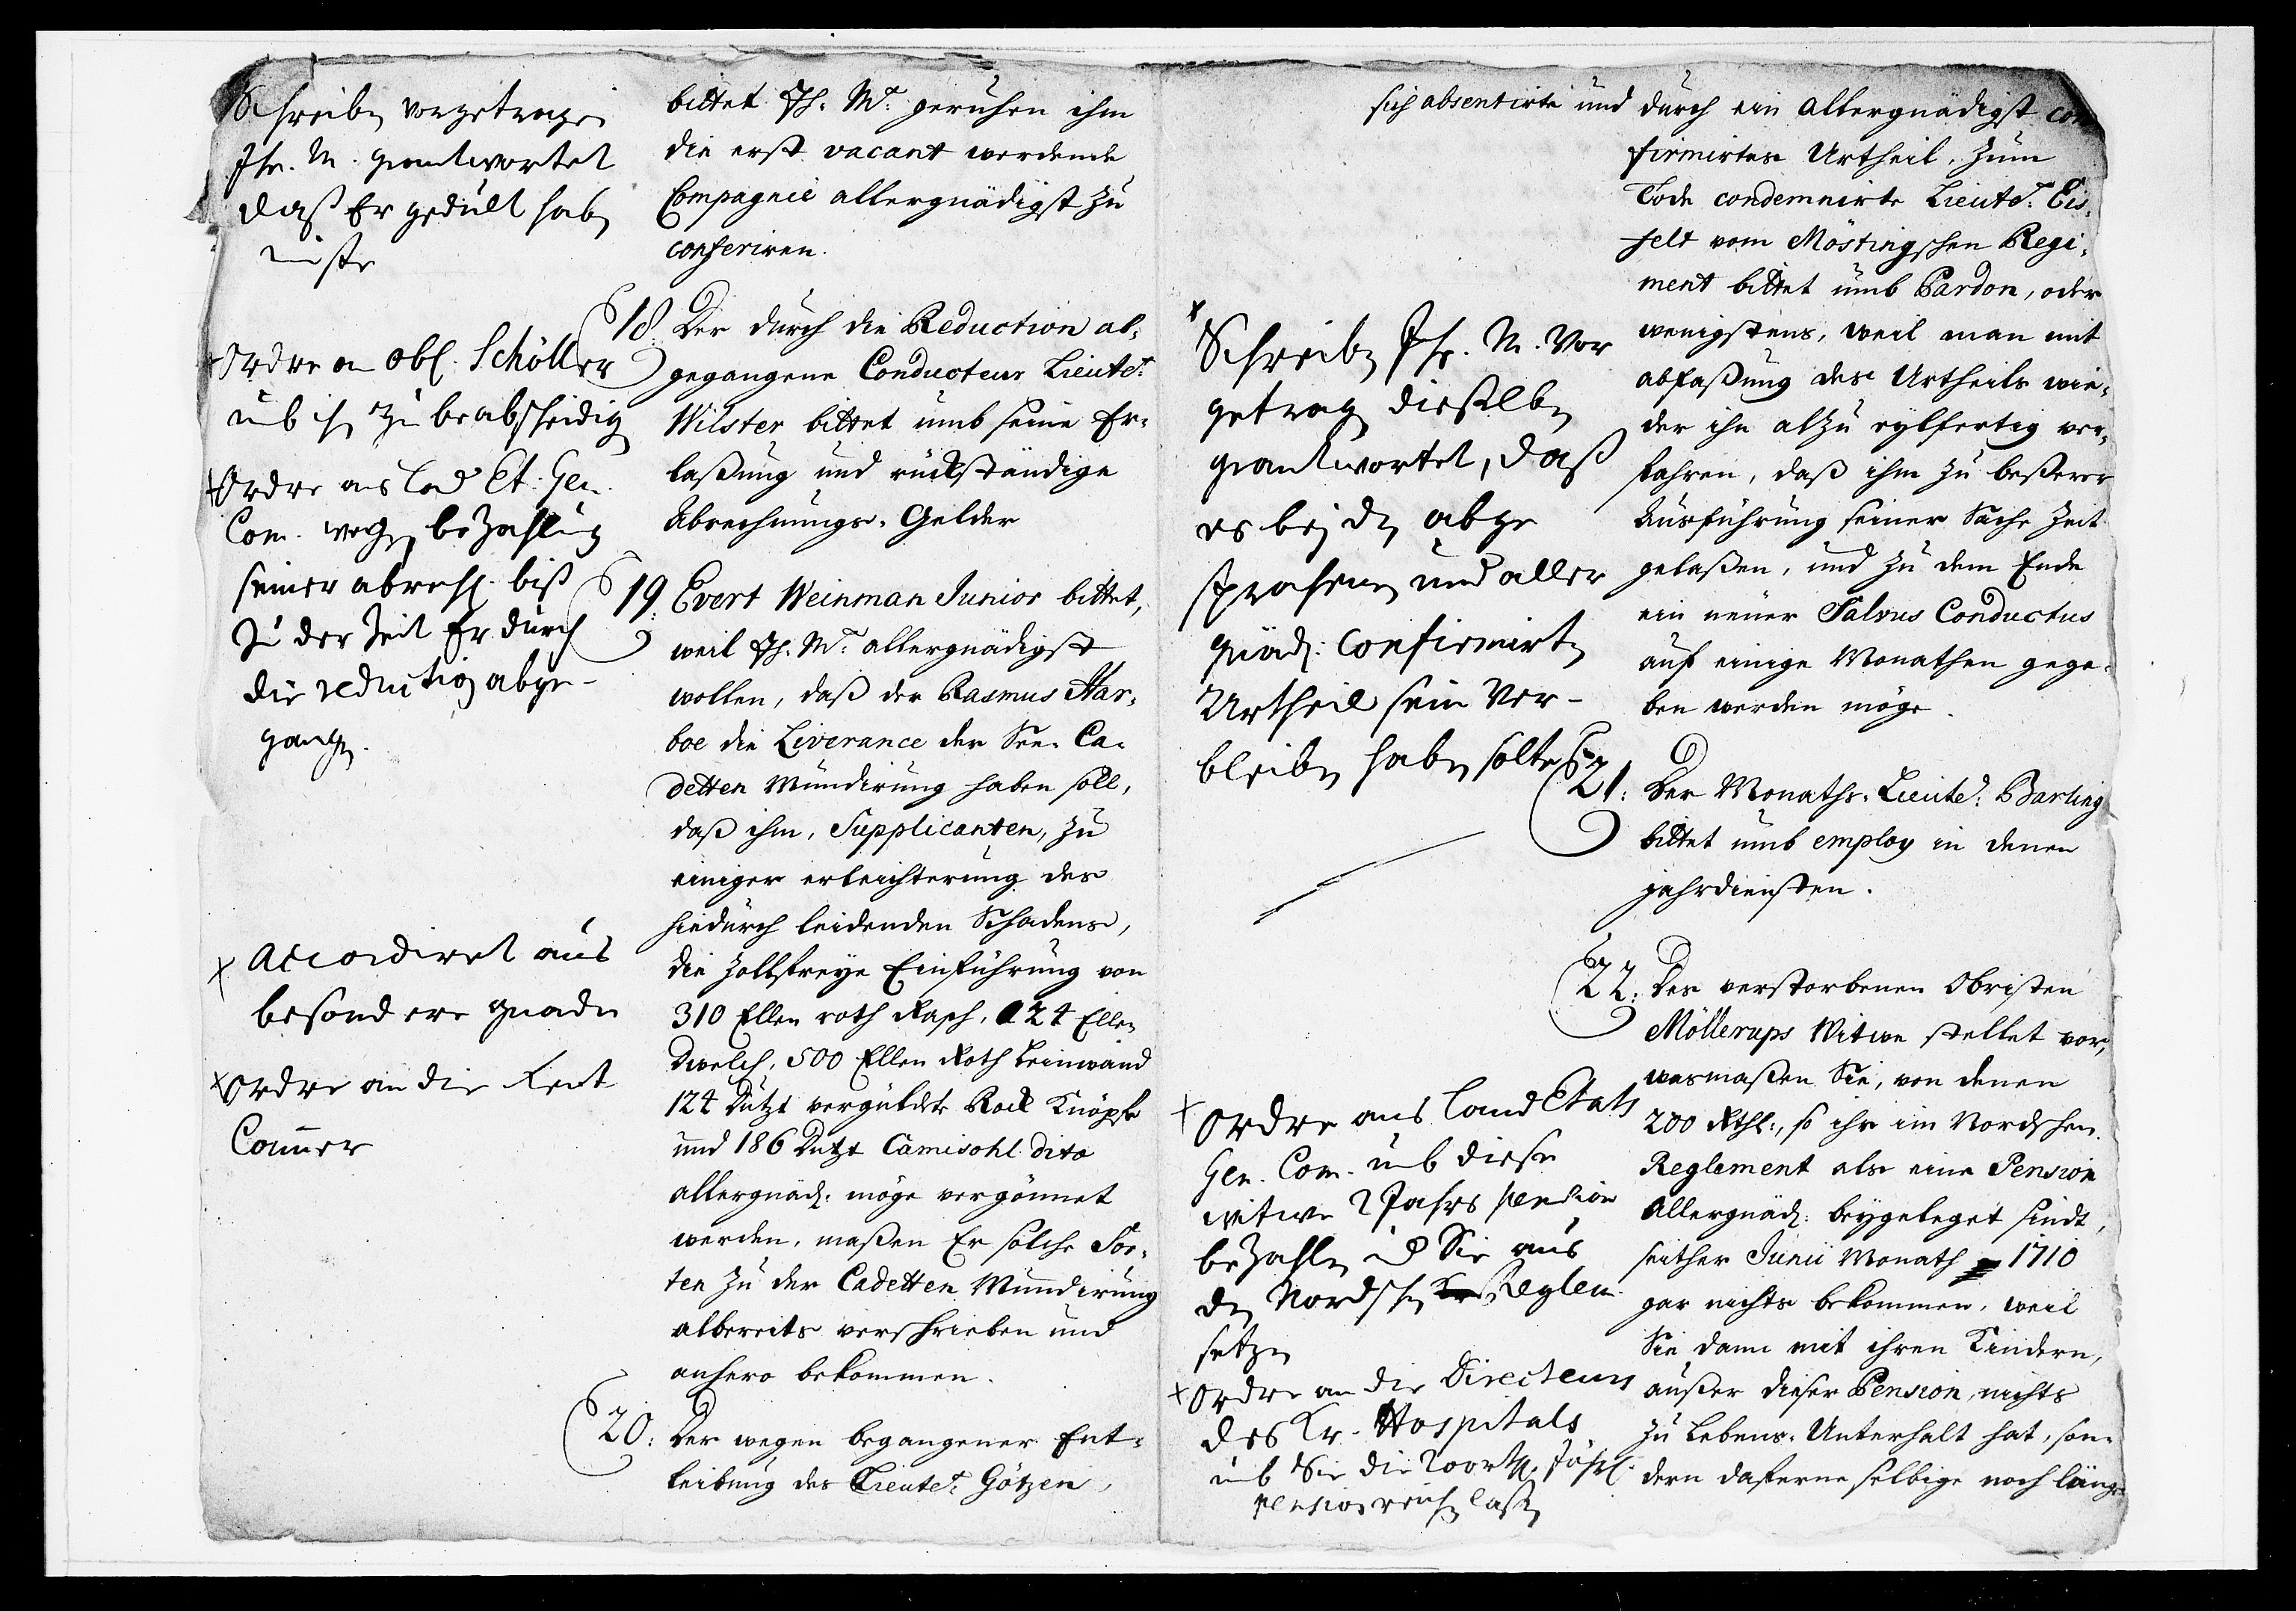 Schreiben vorgetragen
Ihr. M. geantwortet
daß Er gedult haben
müste
bittet Jh: Mt: geruhen ihm
die erst vacant werdende
Compagnie allergnädigst zu
conferiren.
+ Ordre an Obl. Schöller
umb ihn zu beabscheidigen
+ Ordre ans Land Et: Gen.
Com. wegen bezahlung
seiner abrech. biß
zu der Zeit Er durch
die reduction abge-
gangen.
18. Der durch die Reduction ab-
gegangene Conducteur Lieutet:
Wilster bittet umb seine Er-
laßung und rückständige
Abrechnungs-Gelder
19: Evert Weinman Junior bittet,
weil Jh. Mt: allergnädigst
wollen, daß der Rasmus Aar-
boe die Liverance der See-Ca-
detten Mundirung haben soll,
daß ihm, Supplicanten, zu
einiger erleichterung des
hiedurch leidenden Schadens,
die Zollfreye Einführung von
310 Ellen roth Rasch, 124 Ellen
Dwelch, 500 Ellen Roth Leinwand
124 Dutzt vergüldete Rock Knöpfe
und 186 Dutzt Camisohl dito
allergnäd: möge vergönnet
werden, maßen Er solche Sor-
ten zu der Cadetten Mundirung
albereits verschrieben und
anhero bekommen.
+ Accordiret aus
besondere gnade
+ Ordre an die Rent
Cammer
20: Der wegen begangener Ent-
leibung des Lieutet: Götzen,
sich absentirte und durch ein Allergnädigst con
firmirtes Urtheil, zum
Tode condemnirte Lieutet: Eis-
felt vom Möstingschen Regi-
ment bittet umb Pardon, oder
wenigstens, weil man mit
abfaßung des Urtheils wie-
der ihn alzu eylfertig ver-
fahren, daß ihm zu beßerer
Ausführung seiner Sache Zeit
gelaßen, und zu dem Ende
ein neuer Salvus Conductus
auf einige Monathen gege-
ben werden möge.
+
Schreiben Ihr. M. vor
getragen dieselben
geantwortet, daß
es bej den abge
sprochenen und aller
gnäd: confirmirten
Urtheil sein Ver-
bleiben haben solte
21: Der Monaths-Lieutet: Barling
bittet umb employ in denen
Jahrdiensten.
22: Des verstorbenen Obristen
Möllerups Witwe stellet vor,
wasmaßen Sie, von denen
200 Rthl:, so ihr im Nordschen
Reglement als eine Pension
Allergnäd: beygeleget sindt,
seither Junii Monath 1710
gar nichts bekommen, weil
Sie dann mit ihren Kindern,
außer dieser Pension, nichts
zu Lebens-Unterhalt hat, son-
dern daferne selbige noch läng
+ Ordre ans Land Etats
Gen. Com. umb diese
witwe 2 Jahrs pension
bezahlen und Sie aus
den Nordschen Reglem.
setzen
+ Ordre an die Directeurs
des Kr. Hospitals
umb Sie die Jährl.
pension reichen laßen